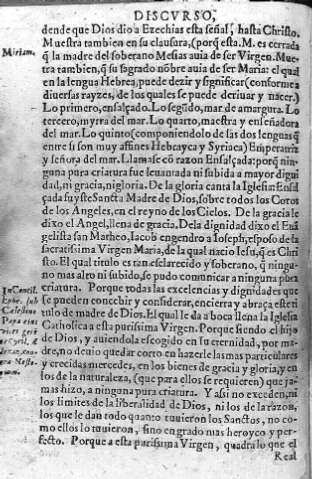 DISCVRSO,
dende que Dios dio a Ezechias esta señal, hasta Christo.
Muestra tambien en su clausura, (porq̃ esta. M. es cerrada
Miriam.
q̃ la madre del soberano Mesias auia de ser Virgen. Mue-
stra tambien, q̃ su sagrado nõbre auia de ser Maria: el qual
en la lengua Hebrea, puede dezir y significar (conforme a
diuersas rayzes, de los quales se puede deriuar y nacer.)
Lo primero, ensalçado. Lo segũdo, mar de amargura. Lo
tercero, myrra del mar. Lo quarto, maestra y enseñadora
del mar. Lo quinto (componiendolo de las dos lenguas q̃
entre si son muy affines Hebrayca y Syriaca) Emperatriz
y señora del mar. Llamase cõ razon Ensalçada: porq̃ nin-
guna pura criatura fue leuantada ni subida a mayor digui
dad, ni gracia, ni gloria. De la gloria canta la Iglesia: Ensal
çada fuyste Sancta Madre de Dios, sobre todos los Coros
de los Angeles, en el reyno de los Cielos. De la gracia le
dixo el Angel, llena de gracia. De la dignidad dixo el Euã
gelista san Mattheo, Iacob engendro a Ioseph, esposo de la
sacratissima Virgen Maria, de la qual nacio Iesu, q̃ es Chri
sto. El qual titulo es tan esclarecido y soberano, q̃ ningu-
no mas alto ni subido, se pudo comunicar a ninguna pura
criatura. Porque todas las excelencias y dignidades que
In Concil.
Ephe. sub
Celestino
Papa
se pueden concebir y considerar, encierra y abraça este ti
tulo de madre de Dios. El qual le da a boca llena la Iglesia
Catholica a esta purissima Virgen. Porque siendo el hijo
de Dios, y auiendola escogido en su eternidad, por ma-
dre, no deuio quedar corto en hazerle las mas particulares
y crecidas mercedes, en los bienes de gracia y gloria, y en
los de la naturaleza, (que para ellos se requieren) que ja-
mas hizo, a ninguna pura criatura. Y assi no exceden, ni
los limites de la liberalidad de Dios, ni los de la razon,
los que le dan todo quanto tuuieron los Sanctos, no co-
mo ellos lo tuuieron, sino en grado mas heroyco y per-
fecto. Porque a esta purissima Virgen, quadra lo que el
Real